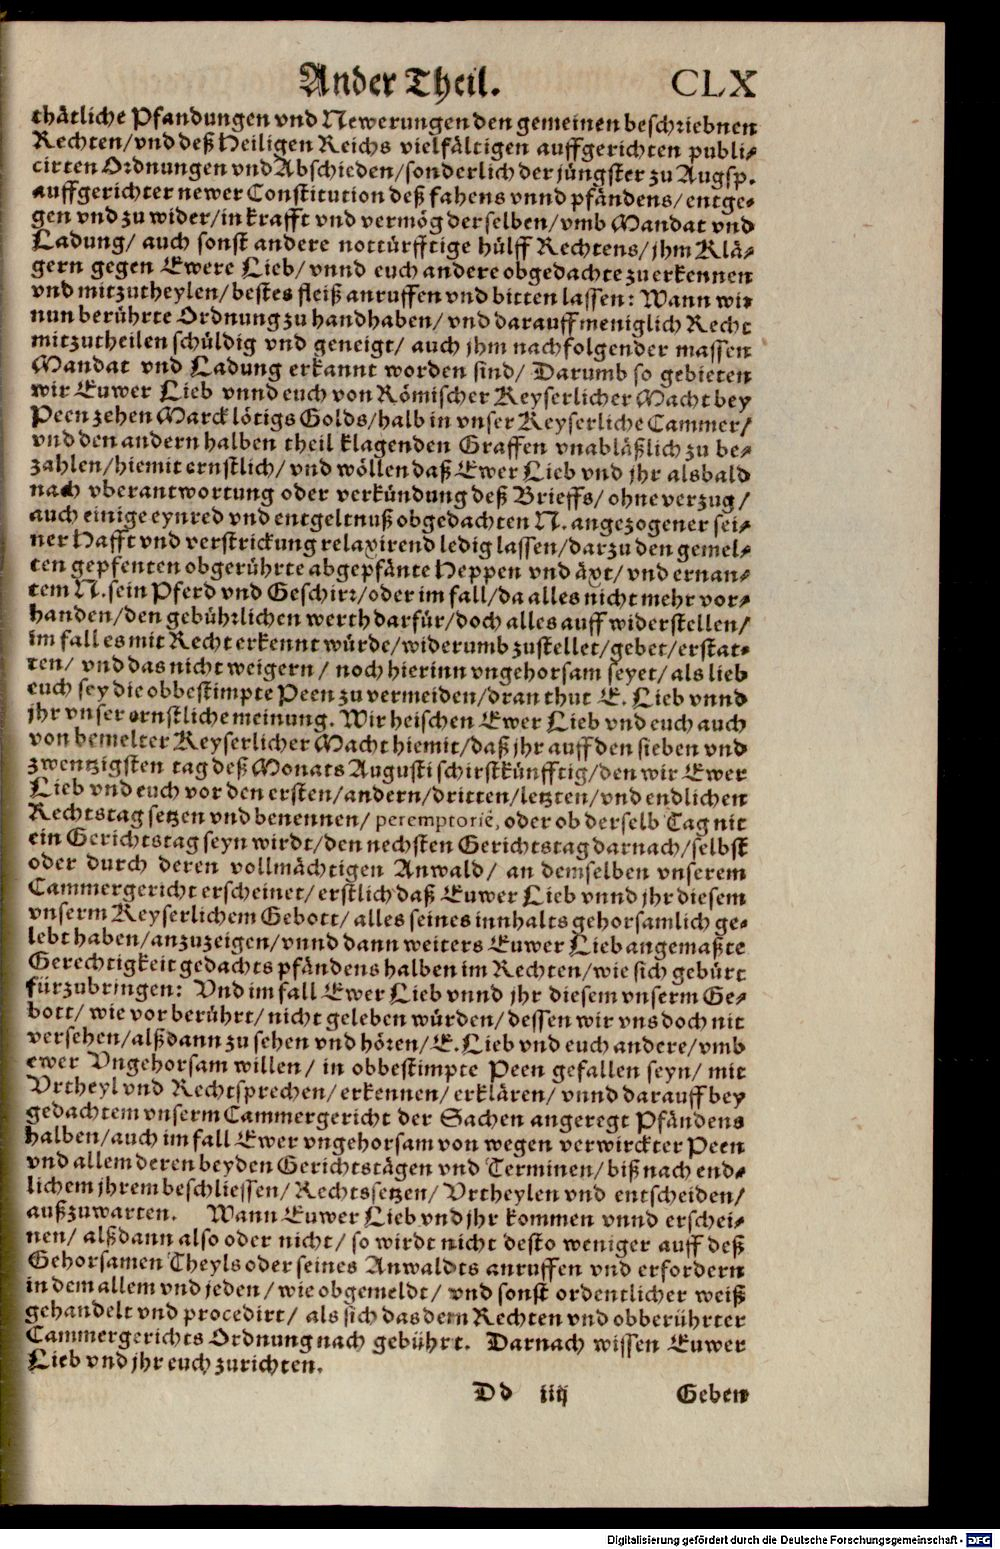 Ander Theil. CLX
thätliche Pfandungen vnd Newerungen den gemeinen beschriebnen
Rechten/vnd deß Heiligen Reichs vielfältigen auffgerichten publi-
cirten Ordnungen vnd Abschieden/sonderlich der jüngster zu Augsp.
auffgerichter newer Constitution deß fahens vnnd pfändens/entge-
gen vnd zu wider/in krafft vnd vermög derselben/vmb Mandat vnd
Ladung/ auch sonst andere nottürfftige hülff Rechtens/jhm Klä-
gern gegen Ewere Lieb/ vnnd euch andere obgedachte zu erkennen
vnd mitzutheylen/bestes fleiß anruffen vnd bitten lassen: Wann wir
nun berührte Ordnung zu handhaben/ vnd darauff meniglich Recht
mitzutheilen schüldig vnd geneigt/ auch jhm nachfolgender massen
Mandat vnd Ladung erkannt worden sind/ Darumb so gebieten
wir Euwer Lieb vnnd euch von Römischer Keyserlicher Macht bey
Peen zehen Marck lötigs Golds/halb in vnser Keyserliche Cammer/
vnd den andern halben theil klagenden Graffen vnabläßlich zu be-
zahlen/hiemit ernstlich/ vnd wöllen daß Ewer Lieb vnd jhr alsbald
nach vberantwortung oder verkündung deß Brieffs/ ohne verzug/
auch einige eynred vnd entgeltnuß obgedachten N. angezogener sei-
ner Hafft vnd verstrickung relaxirend ledig lassen/darzu den gemel-
ten gepfenten obgerührte abgepfänte Heppen vnd äxt/ vnd ernan-
tem N. sein Pferd vnd Geschirr/oder im fall/da alles nicht mehr vor-
handen/den gebührlichen werth darfür/doch alles auff widerstellen/
im fall es mit Recht erkennt würde/widerumb zustellet/gebet/erstat-
ten/ vnd das nicht weigern/ noch hierinn vngehorsam seyet/als lieb
euch sey die obbestimpte Peen zu vermeiden/dran thut E. Lieb vnnd
jhr vnser ernstliche meinung. Wir heischen Ewer Lieb vnd euch auch
von bemelter Keyserlicher Macht hiemit/daß jhr auff den sieben vnd
zwentzigsten tag deß Monats Augusti schirstkünfftig/den wir Ewer
Lieb vnd euch vor den ersten/andern/dritten/letzten/vnd endlichen
Rechtstag setzen vnd benennen/ peremptoriè, oder ob derselb Tag nit
ein Gerichtstag seyn wirdt/den nechsten Gerichtstag darnach/selbst
oder durch deren vollmächtigen Anwald/ an demselben vnserem
Cammergericht erscheinet/ erstlich daß Euwer Lieb vnnd jhr diesem
vnserm Keyserlichem Gebott/ alles seines innhalts gehorsamlich ge-
lebt haben/anzuzeigen/vnnd dann weiters Euwer Lieb angemaßte
Gerechtigkeit gedachts pfändens halben im Rechten/wie sich gebürt
fürzubringen: Vnd im fall Ewer Lieb vnnd jhr diesem vnserm Ge-
bott/ wie vor berührt/nicht geleben würden/dessen wir vns doch nit
versehen/alß dann zu sehen vnd hören/E. Lieb vnd euch andere/vmb
ewer Vngehorsam willen/ in obbestimpte Peen gefallen seyn/ mit
Vrtheyl vnd Rechtsprechen/ erkennen/ erklären/ vnnd darauff bey
gedachtem vnserm Cammergericht der Sachen angeregt Pfändens
halben/auch im fall Ewer vngehorsam von wegen verwirckter Peen
vnd allem deren beyden Gerichtstägen vnd Terminen/biß nach end-
lichem jhrem beschliessen/ Rechtssetzen/ Vrtheylen vnd entscheiden/
außzuwarten. Wann Euwer Lieb vnd jhr kommen vnnd erschei-
nen/ alßdann also oder nicht/ so wirdt nicht desto weniger auff deß
Gehorsamen Theyls oder seines Anwaldts anruffen vnd erfordern
in dem allem vnd jeden/ wie obgemeldt/ vnd sonst ordentlicher weiß
gehandelt vnd procedirt/ als sich das dem Rechten vnd obberührter
Cammergerichts Ordnung nach gebührt. Darnach wissen Euwer
Lieb vnd jhr euch zurichten.
Dd iiij Geben
Digitalisierung gefördert durch die Deutsche Forschungsgemeinschaft - DFG